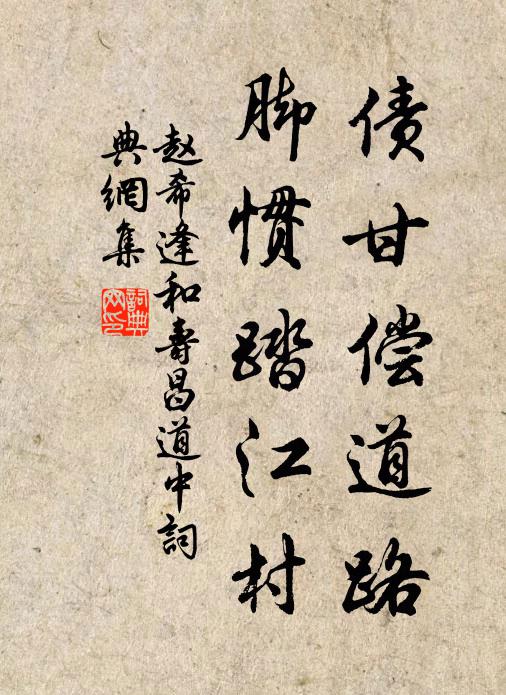 债甘偿道路
脚惯踏江村
赵希逢和寿昌道中词
典網集
詞典網印